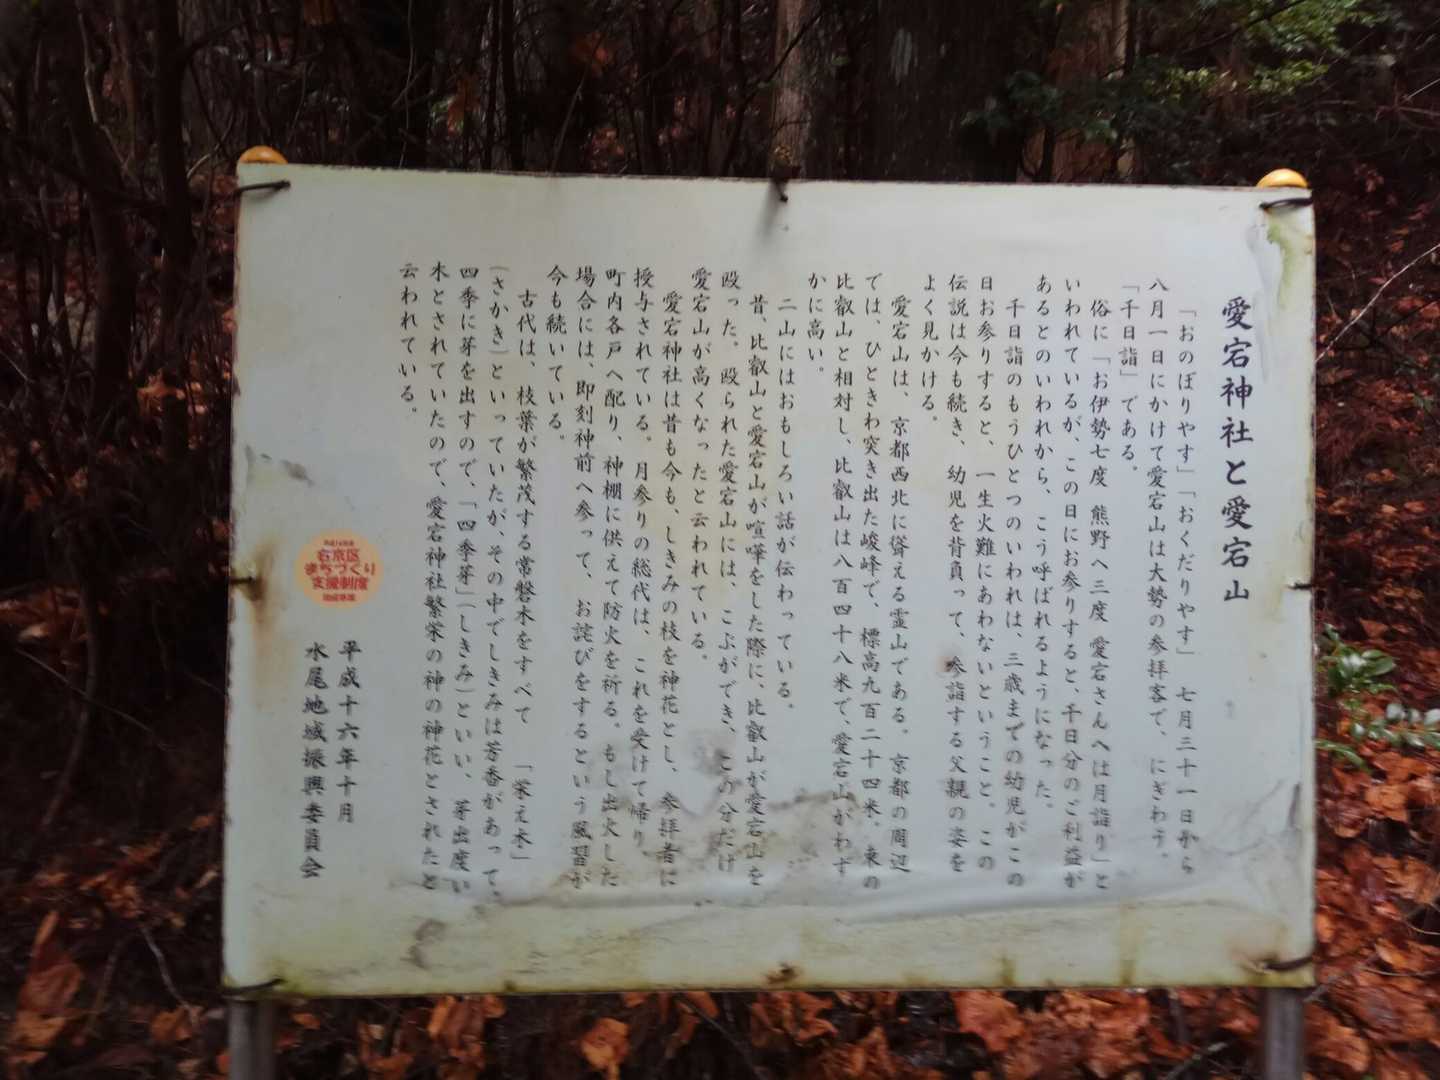 愛宕神社と愛宕山
「おのぼりやす」「おくだりやす」　七月三十一日から
八月一日にかけて愛宕山は大勢の参拝客で、にぎわう。
「千日詣」である。
俗に「お伊勢七度　熊野へ三度　愛宕さんへは月詣り」と
いわれているが、この日にお参りすると、千日分のご利益が
あるとのいわれから、こう呼ばれるようになった。
千日詣のもうひとつのいわれは、三歳までの幼児がこの
日お参りすると、一生火難にあわないということ。この
伝説は今も続き、幼児を背負って、参詣する父親の姿を
よく見かける。
愛宕山は、京都西北に聳える霊山である。京都の周辺
では、ひときわ突き出た峻峰で、標高九百二十四米。東の
比叡山と相対し、比叡山は八百四十八米で、愛宕山がわず
かに高い。
二山にはおもしろい話が伝わっている。
昔、比叡山と愛宕山が喧嘩をした際に、比叡山が愛宕山を
殴った。殴られた愛宕山には、こぶができ、この分だけ
愛宕山が高くなったと云われている。
愛宕神社は昔も今も、しきみの枝を神花とし、参拝者に
授与されている。月参りの総代は、これを受けて帰り、
町内各戸へ配り、神棚に供えて防火を祈る。もし出火した
場合には、即刻神前へ参って、お詫びをするという風習が
今も続いている。
古代は、枝葉が繁茂する常磐木をすべて　「栄え木」
(さかき)といっていたが、その中でしきみは芳香があって、
四季に芽を出すので、「四季芽」(しきみ)といい、芽出度い
木とされていたので、愛宕神社繁栄の神の神花とされたと
云われている。
平成十六年十月
水尾地域振興委員会
右京区
まちづくり
支援制度